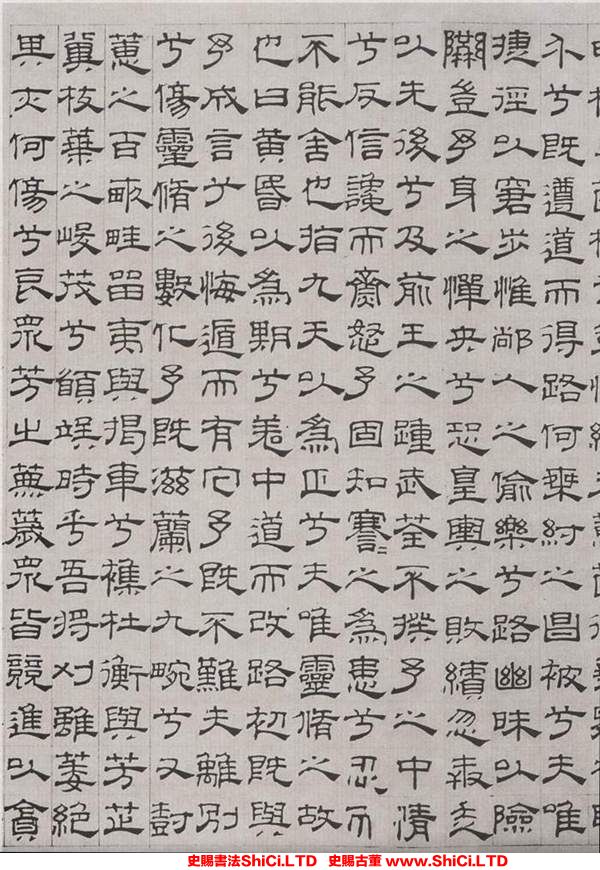 介兮既遵道而得路何桀紂之昌被兮夫唯
捷徑以窘步惟黨人之偷樂兮路幽昧以險
隘豈予身之憚央兮恐皇輿之敗績忽奔走
以先後兮及前王之踵武荃不揆予之中情
兮反信讒而齌怒予固知謇〻之為患兮忍而
不能舍也指九天以為正兮夫唯靈脩之故
也曰黃昏以為期兮羌中道而改路初既與
予成言兮後悔遁而有它予既不難夫離別
兮傷靈脩之數化予既滋蘭之九畹兮又樹
蕙之百畝畦留夷與揭車兮雜杜衡與芳芷
冀枝葉之峻茂兮願竢時乎吾將刈雖萎絕
其亦何傷兮哀眾芳之蕪薉眾皆競進以貪
史賜書法ShiCi.LTD 史賜古董 www.ShiCi.LTD